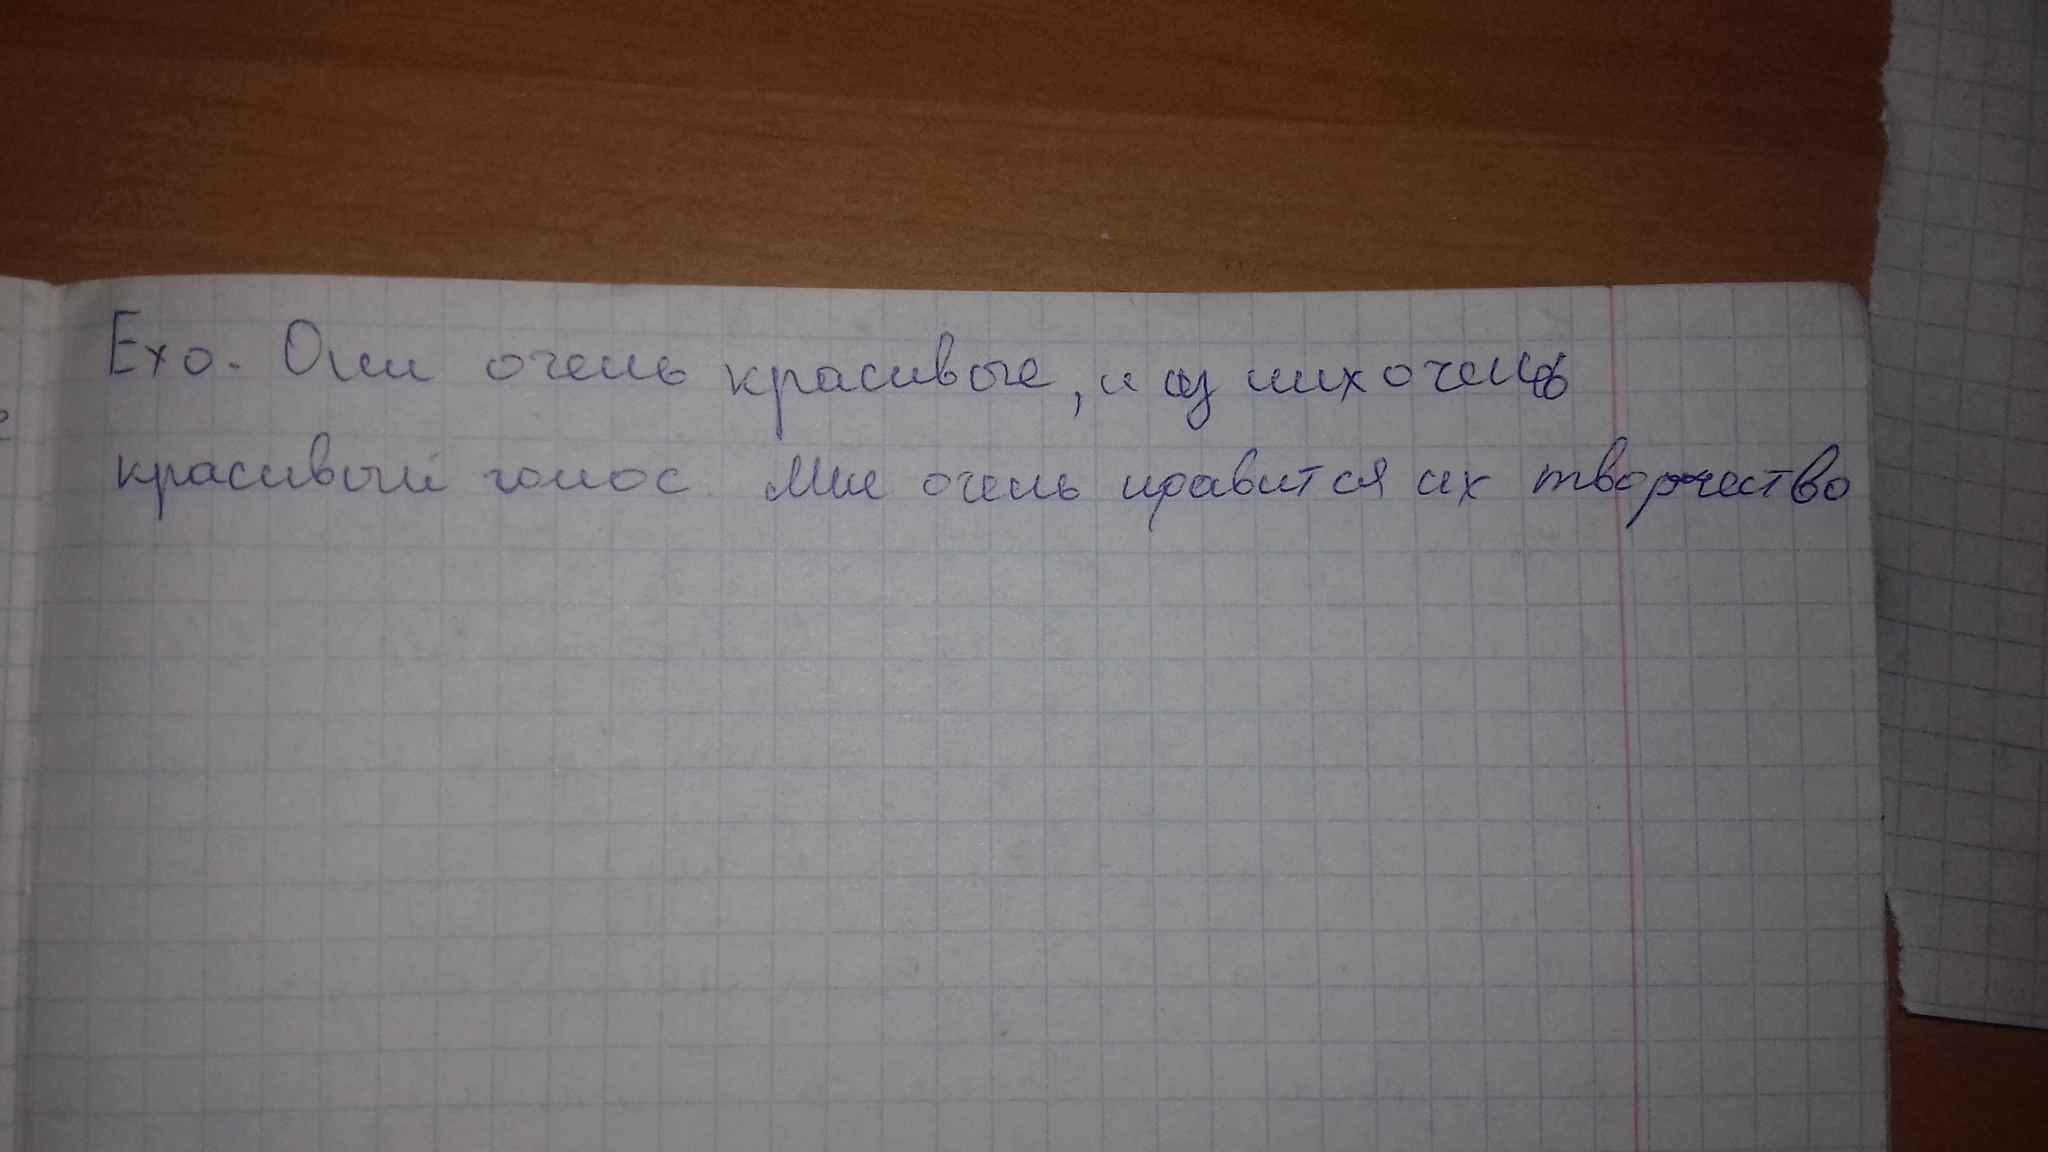 Exo. Они очень красивые, и из них очень
красивый голос. Мне очень нравится их творчество